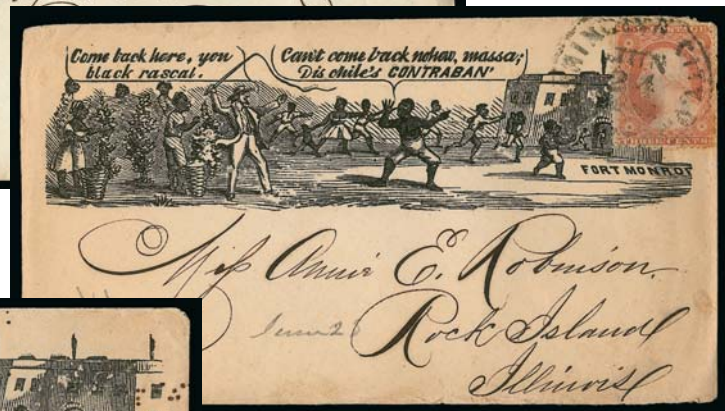 Come back here, you
black rascal.
Can't come back nohow, massa;
Dis chile's CONTRABAN'
FORT MONRO
Miss Annie E. Robinson.
Rock Island
Illinois